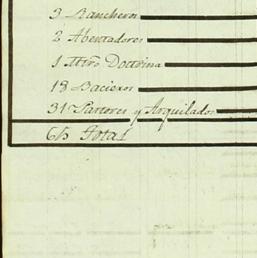 3 Ranchero
2 Abentadores
1 Mtro Dottrina
18 Bacieros
31 Pastores y Arquilados
65 Total